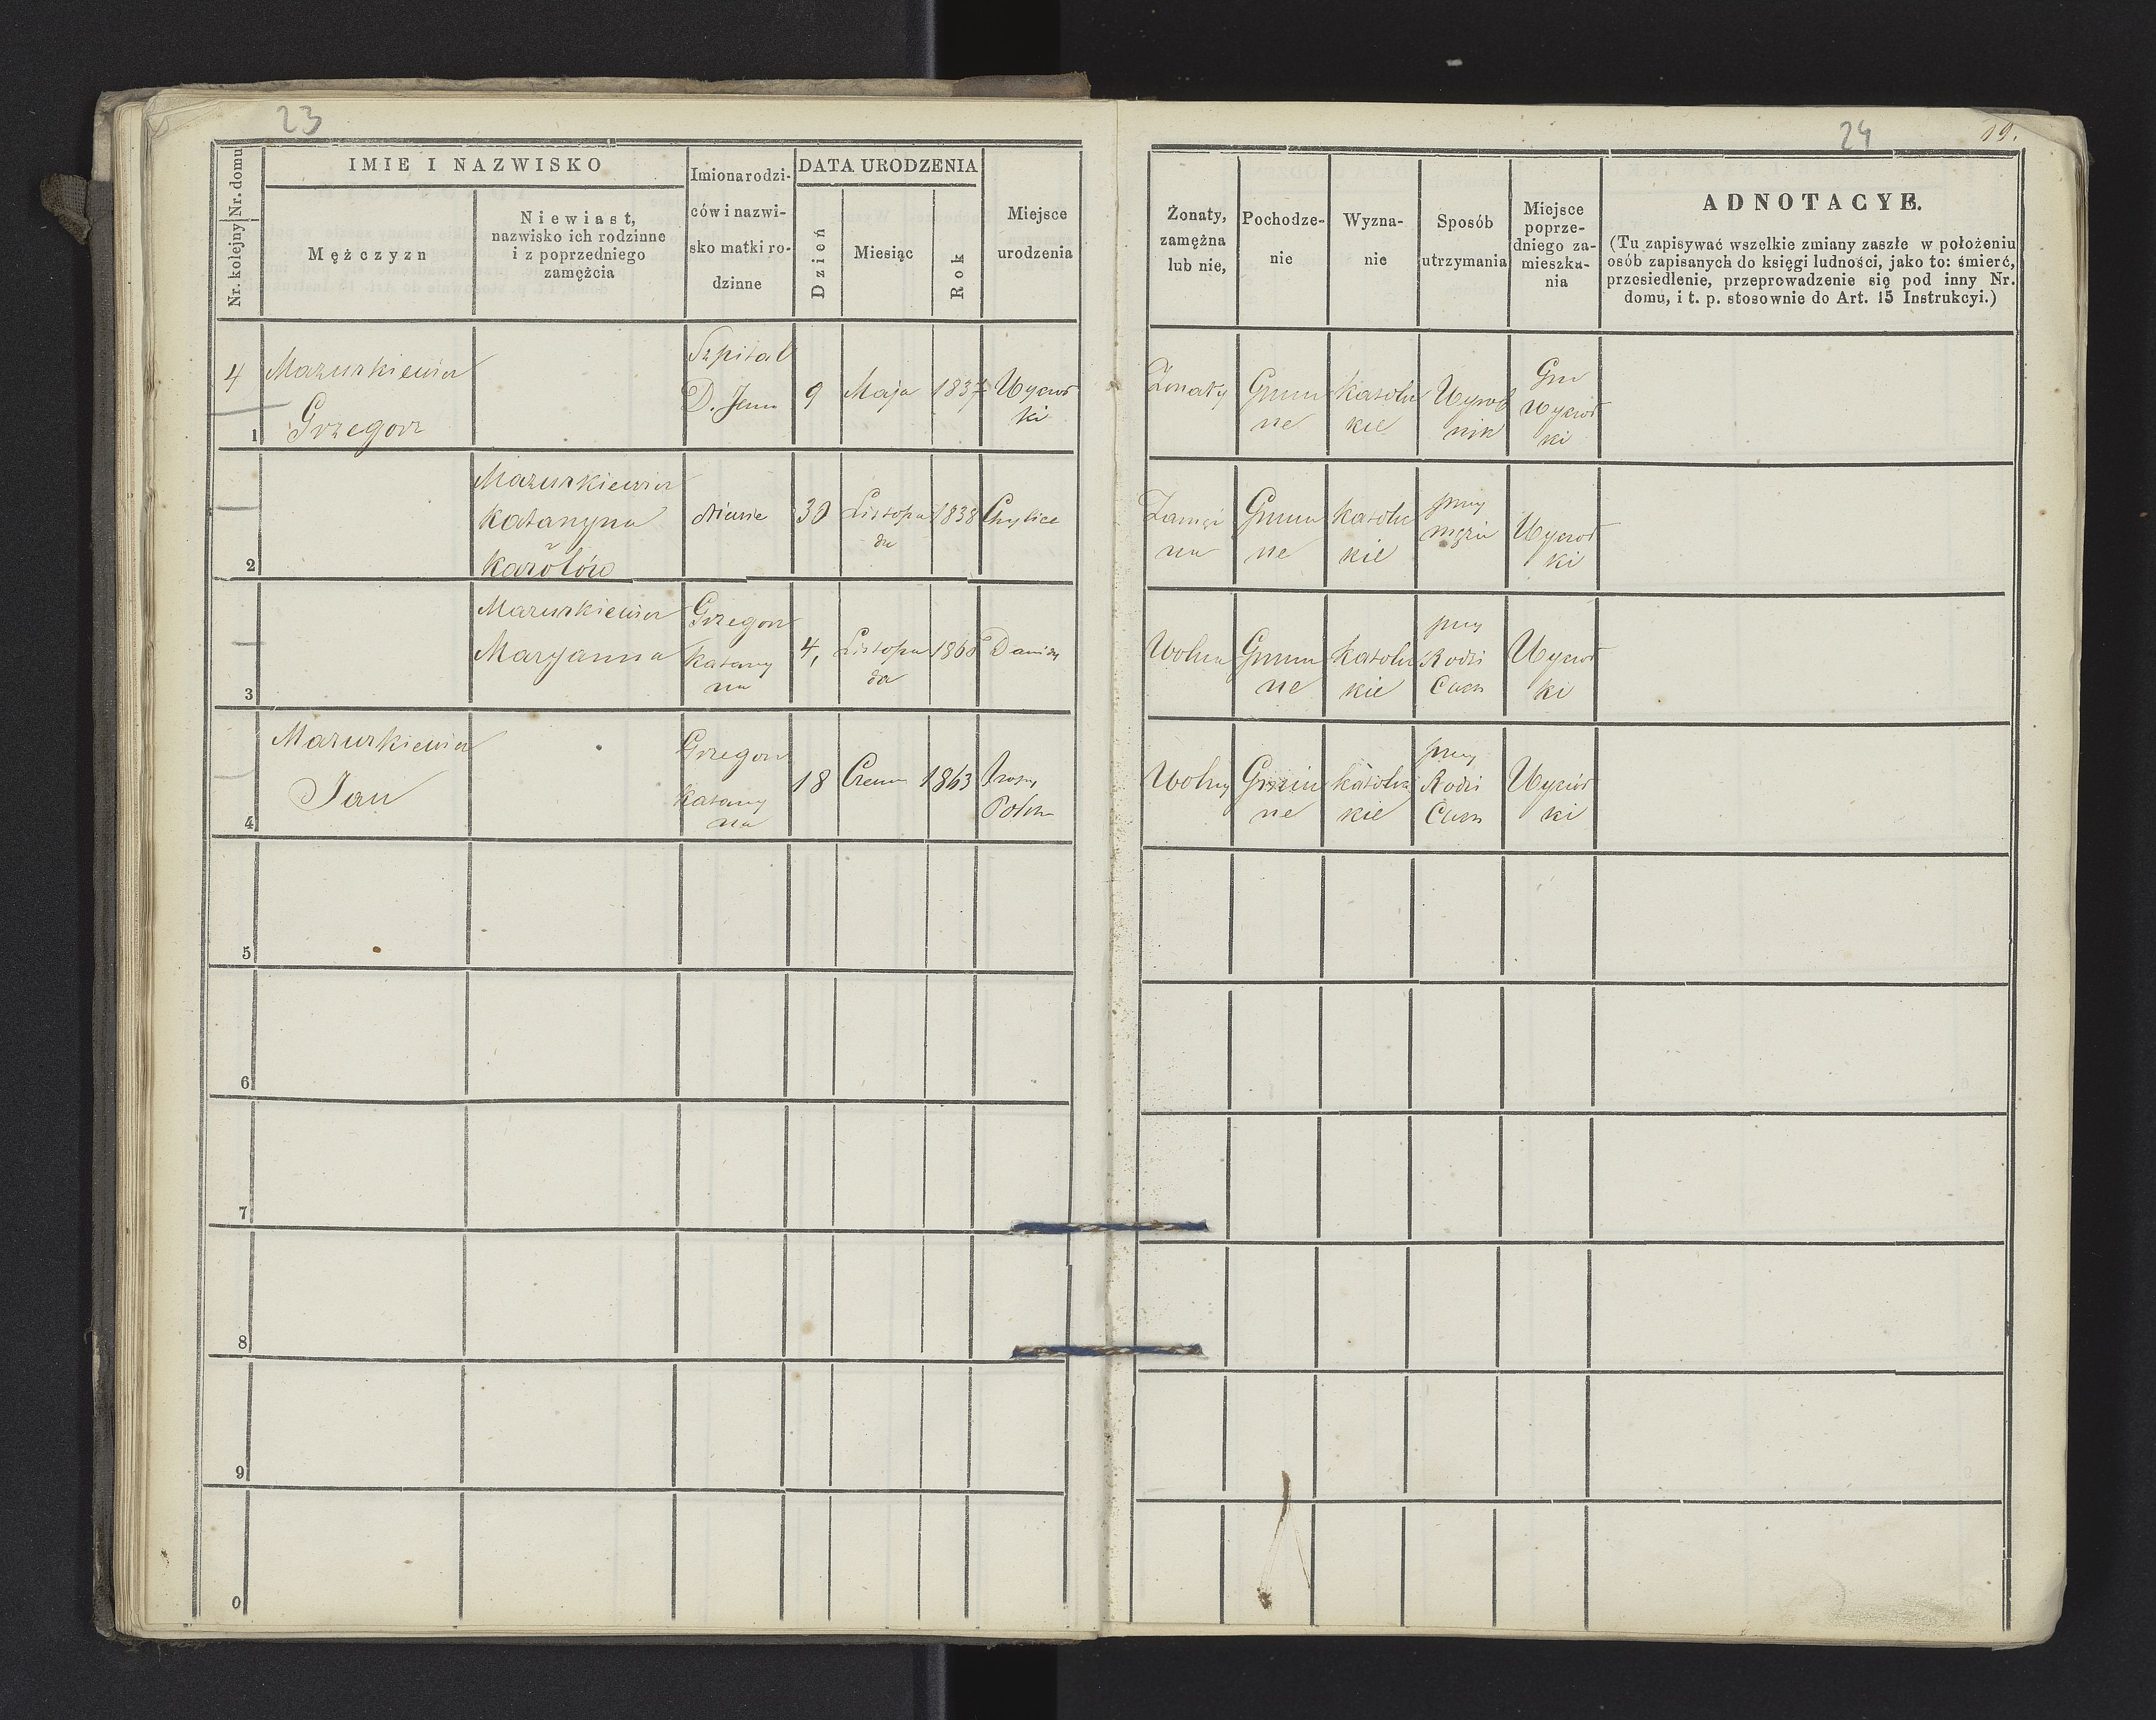 23
Nr. kolejny Nr. domu
IMIE I NAZWISKO
Mężczyzn
Niewiast,
nazwisko ich rodzinne
i z poprzedniego
zamężcia
Imiona rodzi-
ców i nazwi-
sko matki ro-
dzinne
DATA URODZENIA
Dzień
Miesiąc
Rok
Miejsce
urodzenia
4
1
Mazurkiewicz
Grzegorz
Szpital
D. Jezus
9
Maja
1837
2
Mazurkiewicz
Katarzyna
Karolów
30
Listopa
da
1838
Chylice
3
Mazurkiewicz
Maryanna
Grzegorz
Katarzy
na
4,
Listopa
da
4
Mazurkiewicz
Jan
Grzegorz
Katarzy
na
18
Czerw
1863
5
6
7
8
9
0
24
19.
Żonaty,
zamężna
lub nie,
Pochodze-
nie
Wyzna-
nie
Sposób
utrzymania
Miejsce
poprze-
dniego za-
mieszka-
nia
ADNOTACYE.
(Tu zapisywać wszelkie zmiany zaszłe w położeniu
osób zapisanych do księgi ludności, jako to: śmierć,
przesiedlenie, przeprowadzenie się pod inny Nr.
domu, i t. p. stosownie do Art. 15 Instrukcyi.)
Żonaty
Gminn
ne
Katolic
kie
Wyrob
nik
Gm
Zamęż
na
Gminn
ne
Katolic
kie
przy
mężu
Wolna
Gminn
ne
Katolic
kie
przy
Rodzi
Cach
Wolny
Gminn
ne
Katolic
kie
przy
Rodzi
Cach